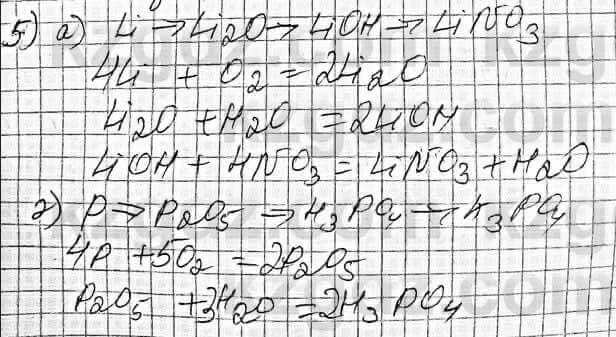 5) а) Li → Li₂O → LiOH → LiNO₃
4Li + O₂ = 2Li₂O
Li₂O + H₂O = 2LiOH
LiOH + HNO₃ = LiNO₃ + H₂O
г) P → P₂O₅ → H₃PO₄ → K₃PO₄
4P + 5O₂ = 2P₂O₅
P₂O₅ + 3H₂O = 2H₃PO₄